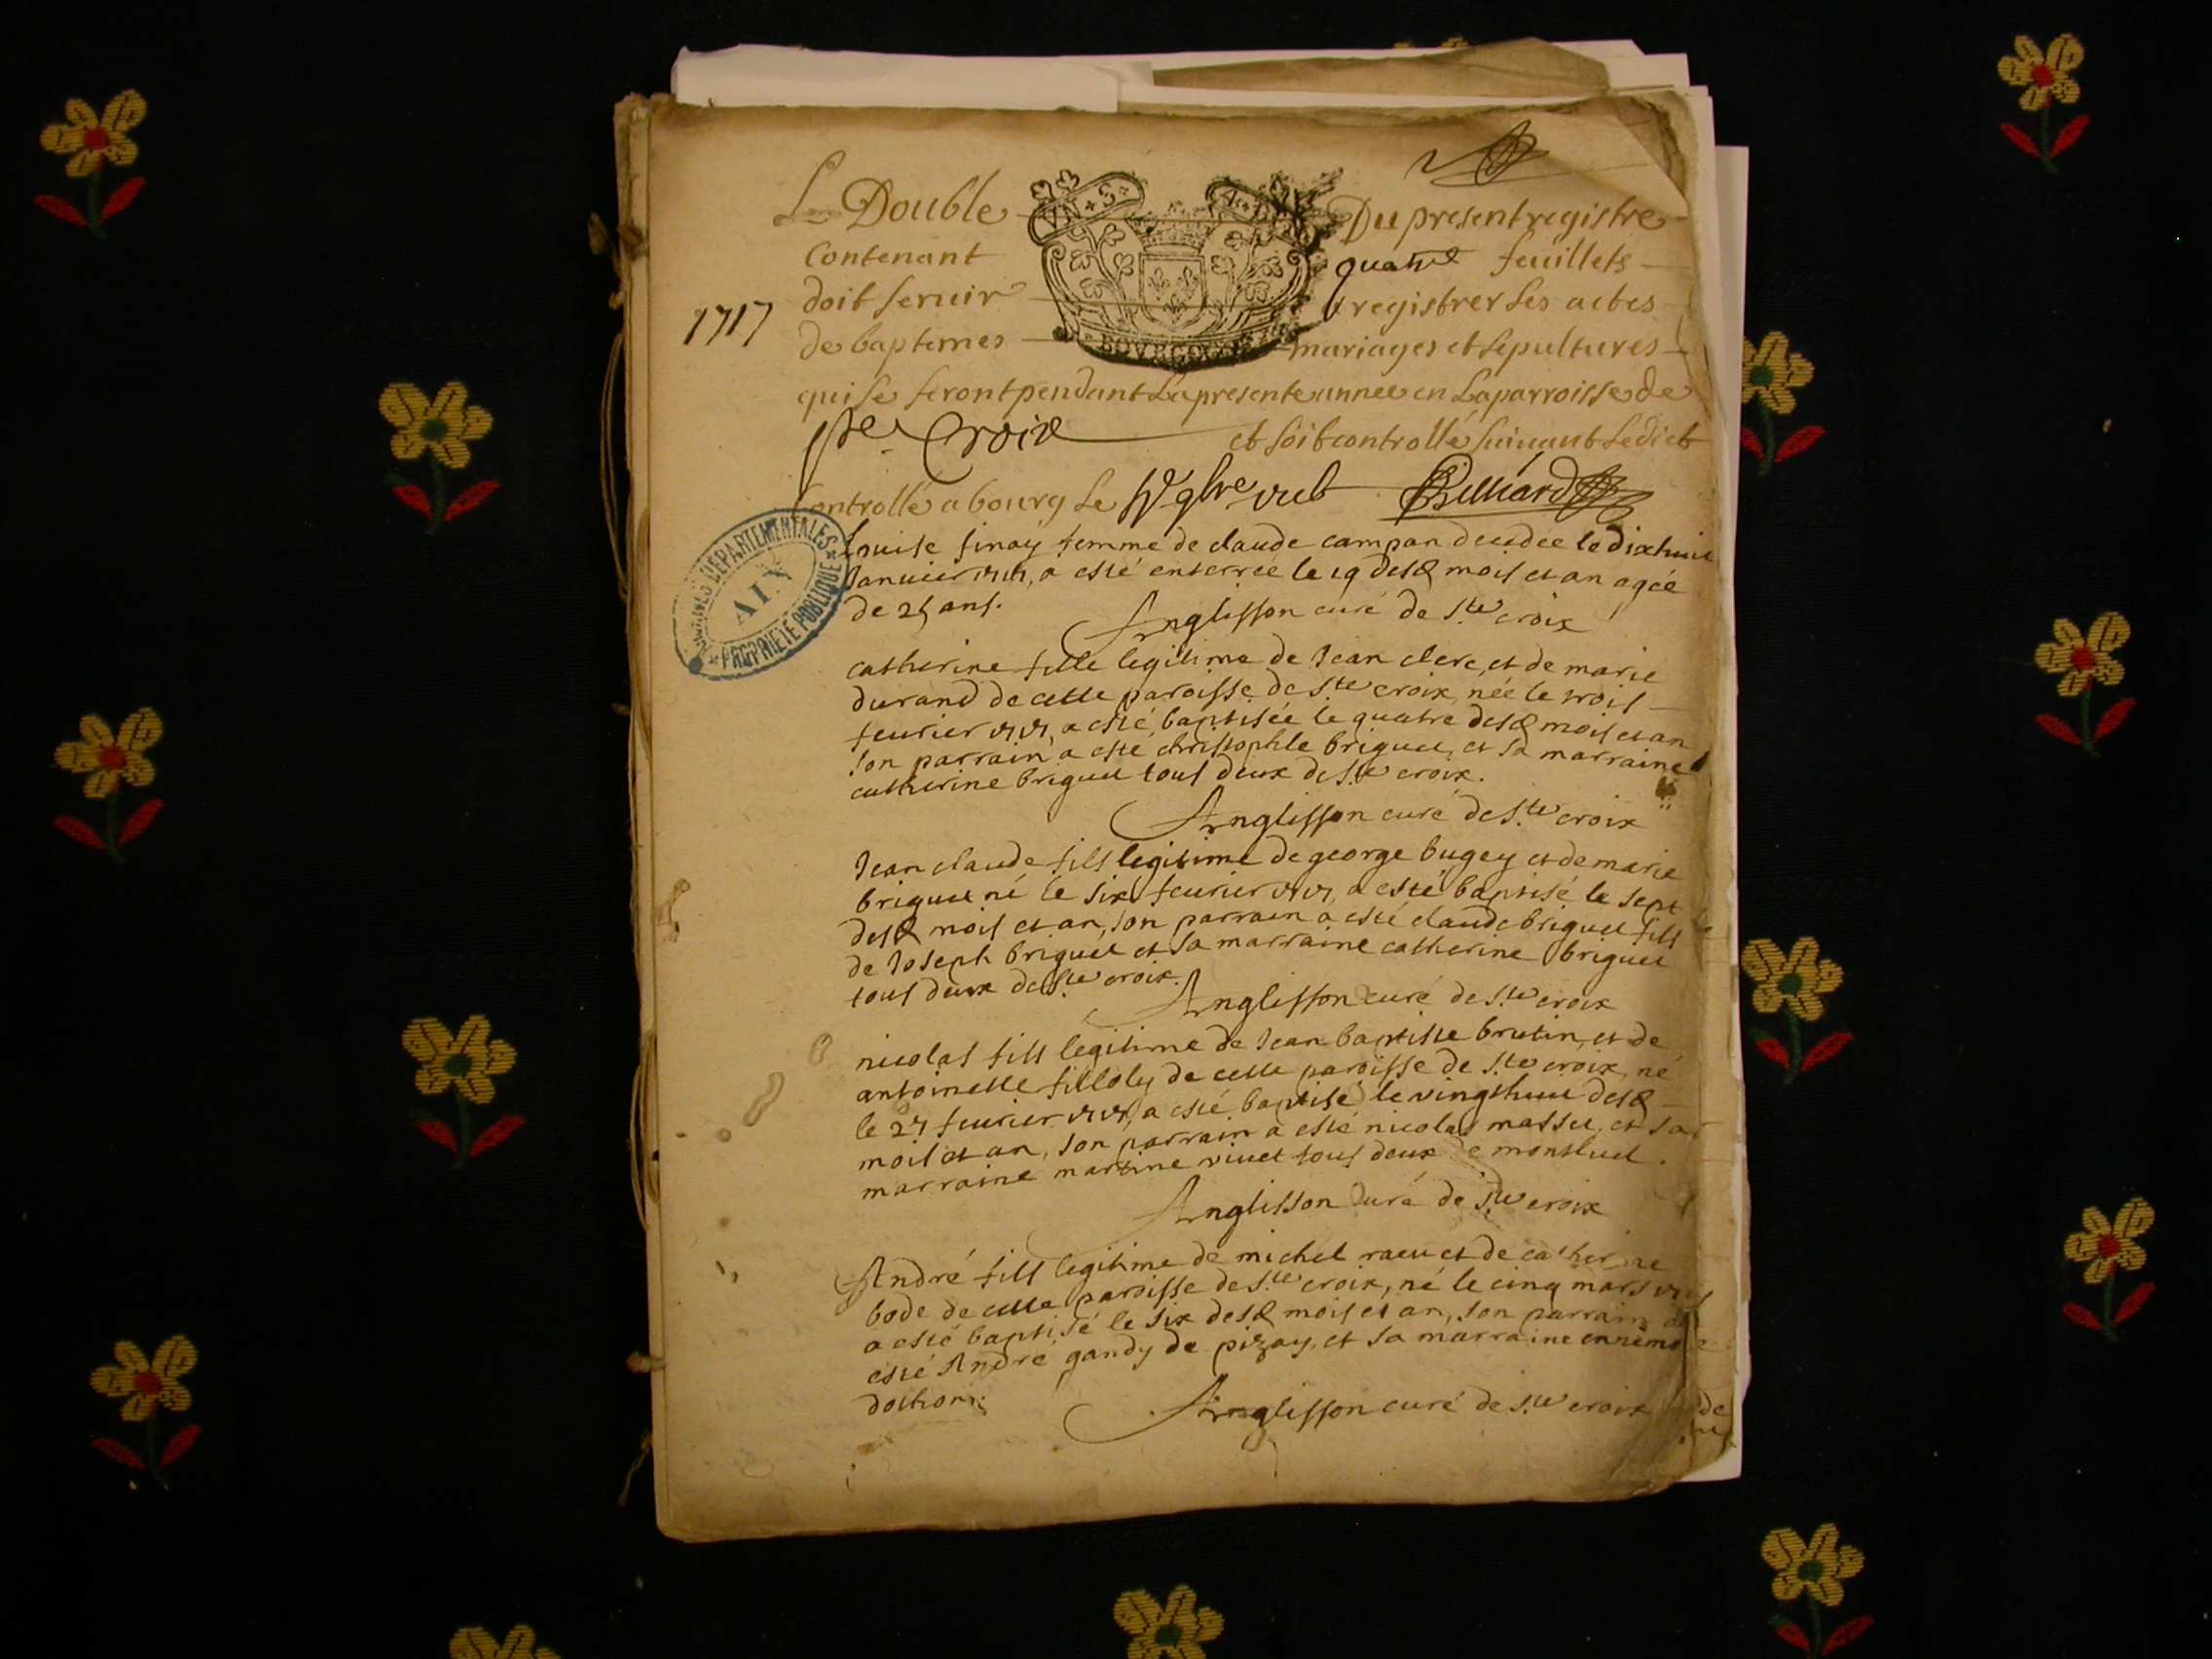 Le Double Du present registre
Contenant quatre feuillets
1717
doit servir registrer les actes
de baptemes mariages et sepultures
UN S
BOURGOGNE
qui se feront pendant la presente annee en la parroisse de
Ste Croix et soit controllé suivant ledict
Controllé a bourg le Billiard
ARCHIVES DEPARTEMENTALES
AIN
PROPRIETE PUBLIQUE
Louise finay femme de claude campan decedee le dixhuit
Januier 1717, a esté enterrée le 19 desd mois et an agée
de 25 ans.
Anglisson curé de Ste croix
catherine fille legitime de Jean clerc, et de marie
durand de cette paroisse de Ste croix, née le trois
feurier 1717, a esté baptisée le quatre desd mois et an
son parrain a esté christophle briguet, et sa marraine
catherine briguet tous deux de Ste croix.
Anglisson curé de Ste croix
Jean claude fils legitime de george bugey et de marie
briguet né le six feurier 1717, a esté baptisé le sept
desd mois et an, son parrain a esté claude briguet fils
de Joseph briguet et sa marraine catherine briguet
tous deux de Ste croix.
Anglisson curé de Ste croix
nicolas fils legitime de Jean baptiste brutin, et de
antoinette filloly de cette paroisse de Ste croix, né
le 27 feurier 1717, a esté baptisé le vingthuit desd
mois et an, son parrain a esté nicolas massu, et sa
marraine martine vivet tous deux de montluel.
Anglisson curé de Ste croix
André fils legitime de michel racu et de catherine
bode de cette paroisse de Ste croix, né le cinq mars 1717
a esté baptisé le six desd mois et an, son parrain a
esté André gandy de pizay, et sa marraine ennemonde
dothon.
Anglisson curé de Ste croix